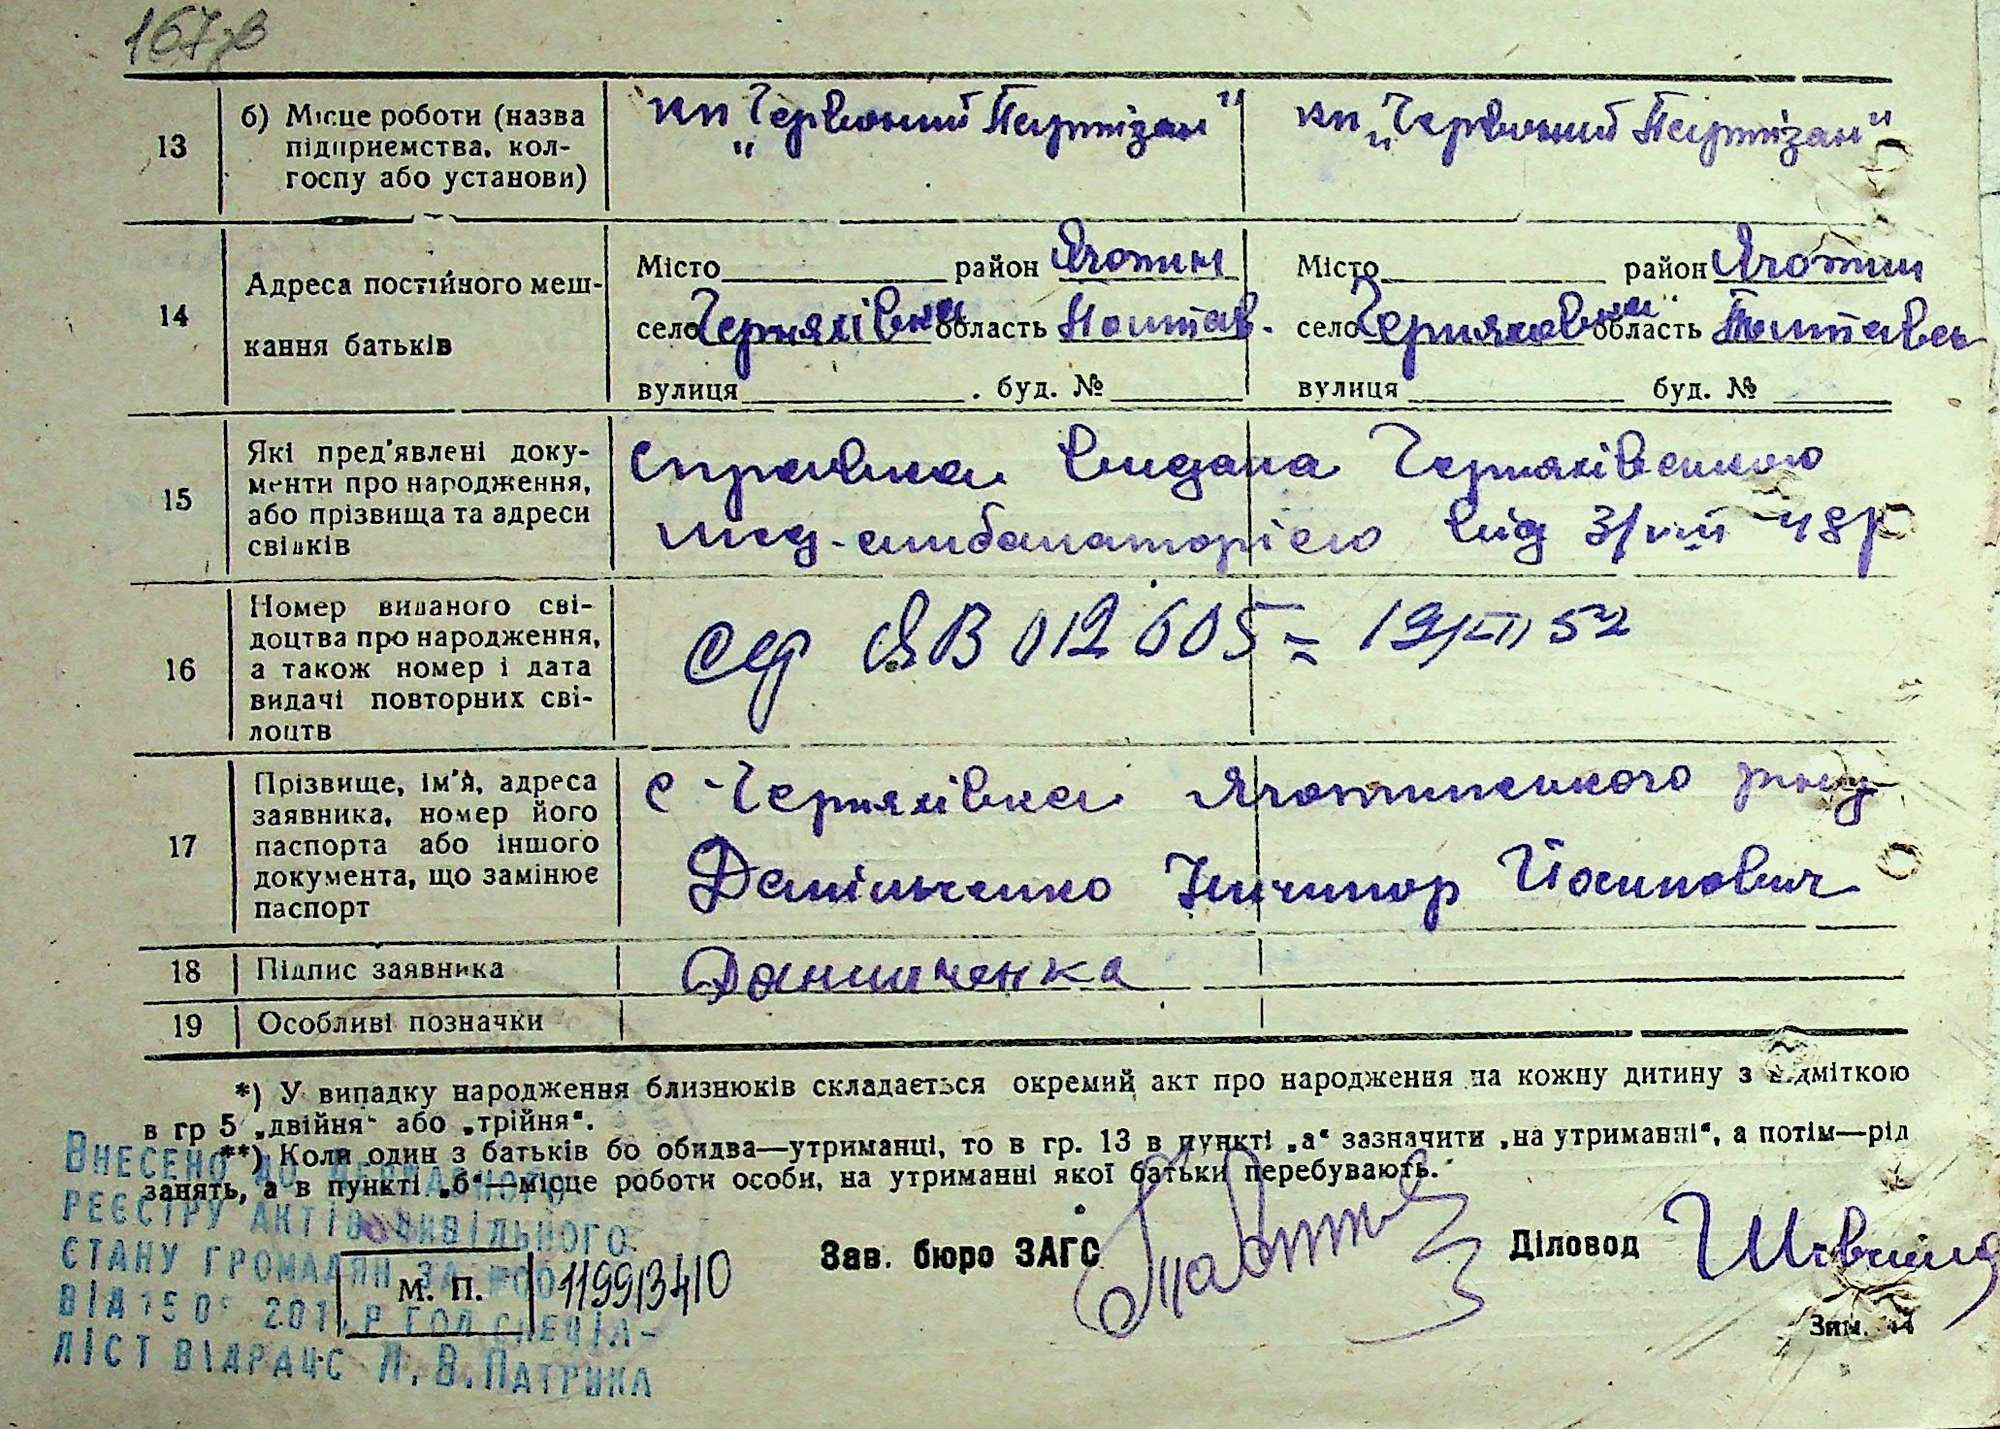 167 зв
13 б) Місце роботи (назва підприємства, колгоспу або установи)
кп „Червоний Партізан"
кп „Червоний Партізан"
14 Адреса постійного мешкання батьків
Місто район Яготин
село Черняхівка область Полтав.
вулиця . буд. №
Місто район Яготин
село Черняховка область Полтавськ
вулиця буд. №
15 Які пред'явлені документи про народження, або прізвища та адреси свідків
Справка видана Черняхівською
мед-амбалаторією від 3/VIII 48р
16 Номер виданого свідоцтва про народження, а також номер і дата видачі повторних свідоцтв
ЯВ 012605 = 19/XII 52
17 Прізвище, ім'я, адреса заявника, номер його паспорта або іншого документа, що замінює паспорт
с Черняхівка Яготинського р-ну
Данільченко Ничипор Йосипович
18 Підпис заявника
Данильченка
19 Особливі позначки
*) У випадку народження близнюків складається окремий акт про народження на кожну дитину з відміткою
в гр 5 „двійня" або „трійня".
**) Коли один з батьків бо обидва—утриманці, то в гр. 13 в пункті „а" зазначити „на утриманні", а потім—рід
занять, а в пункті „б"—місце роботи особи, на утриманні якої батьки перебувають.
Внесено до Державного
реєстру актів цивільного
стану громадян за №00119913410
М. П.
Зав. бюро ЗАГС
Діловод
ліст відрацс Л. В. Патрика
Зим.